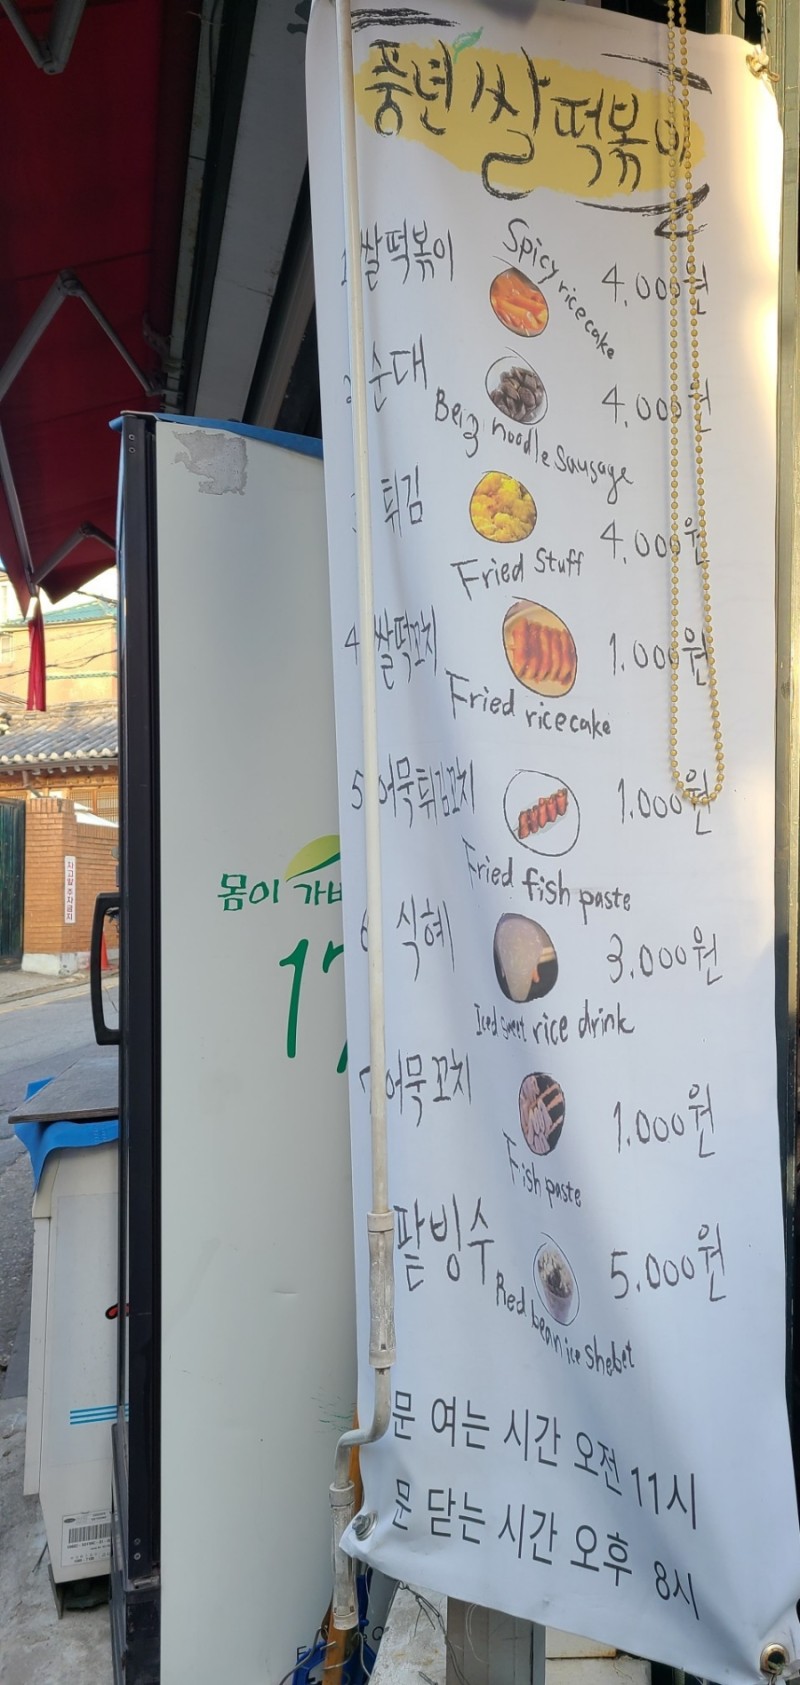 풍년 쌀 떡볶이
쌀떡볶이 Spicy rice cake 4.000원
순대 Being noodle sausage 4.000원
튀김 Fried stuff 4.000원
4 쌀떡꼬치 Fried rice cake 1.000원
5 어묵튀김꼬치 Fried fish paste 1.000원
6 식혜 Iced sweet rice drink 3.000원
7 어묵꼬치 Fish paste 1.000원
팥빙수 Red bean ice shebet 5.000원
문 여는 시간 오전 11시
문 닫는 시간 오후 8시
몸이 가벼
17